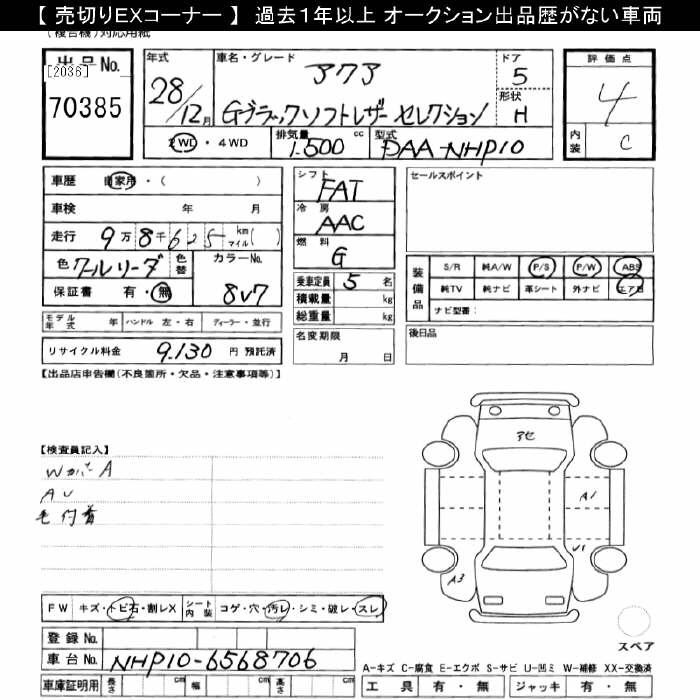 【 売切りEXコーナー 】 過去1年以上 オークション出品歴がない車両
(複合機)対応用紙
出品No.
[2036]
70385
年式
28/12月
車名・グレード
アクア
Gブラックソフトレザーセレクション
ドア
5
形状
H
2WD・4WD
排気量 1.500 cc
型式 DAA-NHP10
評価点
4
内装 C
車歴 自家用・( )
車検 年 月
走行 9万8千625 km マイル( )
色 クールソーダ 色替 カラーNo. 8V7
保証書 有・無
モデル年式 年 ハンドル 左・右 ディーラー・並行
リサイクル料金 9.130 円 預託済
シフト
FAT
冷房
AAC
燃料
G
乗車定員 5 名
積載量 kg
総重量 kg
名変期限
月 日
セールスポイント
装備品
S/R 純A/W P/S P/W ABS
純TV 純ナビ 革シート 外ナビ エアB
ナビ型番:
後日品
【出品店申告欄(不良箇所・欠品・注意事項等)】
【検査員記入】
WカバーA
AU
毛付着
アセ
A1
U1
A3
FW キズ・トビ石・割レX シート内装 コゲ・穴・汚レ・シミ・破レ・スレ
登録No.
車台No. NHP10-6568706
車庫証明用 長さ cm 幅 cm 高さ cm
スペア
A-キズ C-腐食 E-エクボ S-サビ U-凹ミ W-補修 XX-交換済
工具 有・無 ジャッキ 有・無